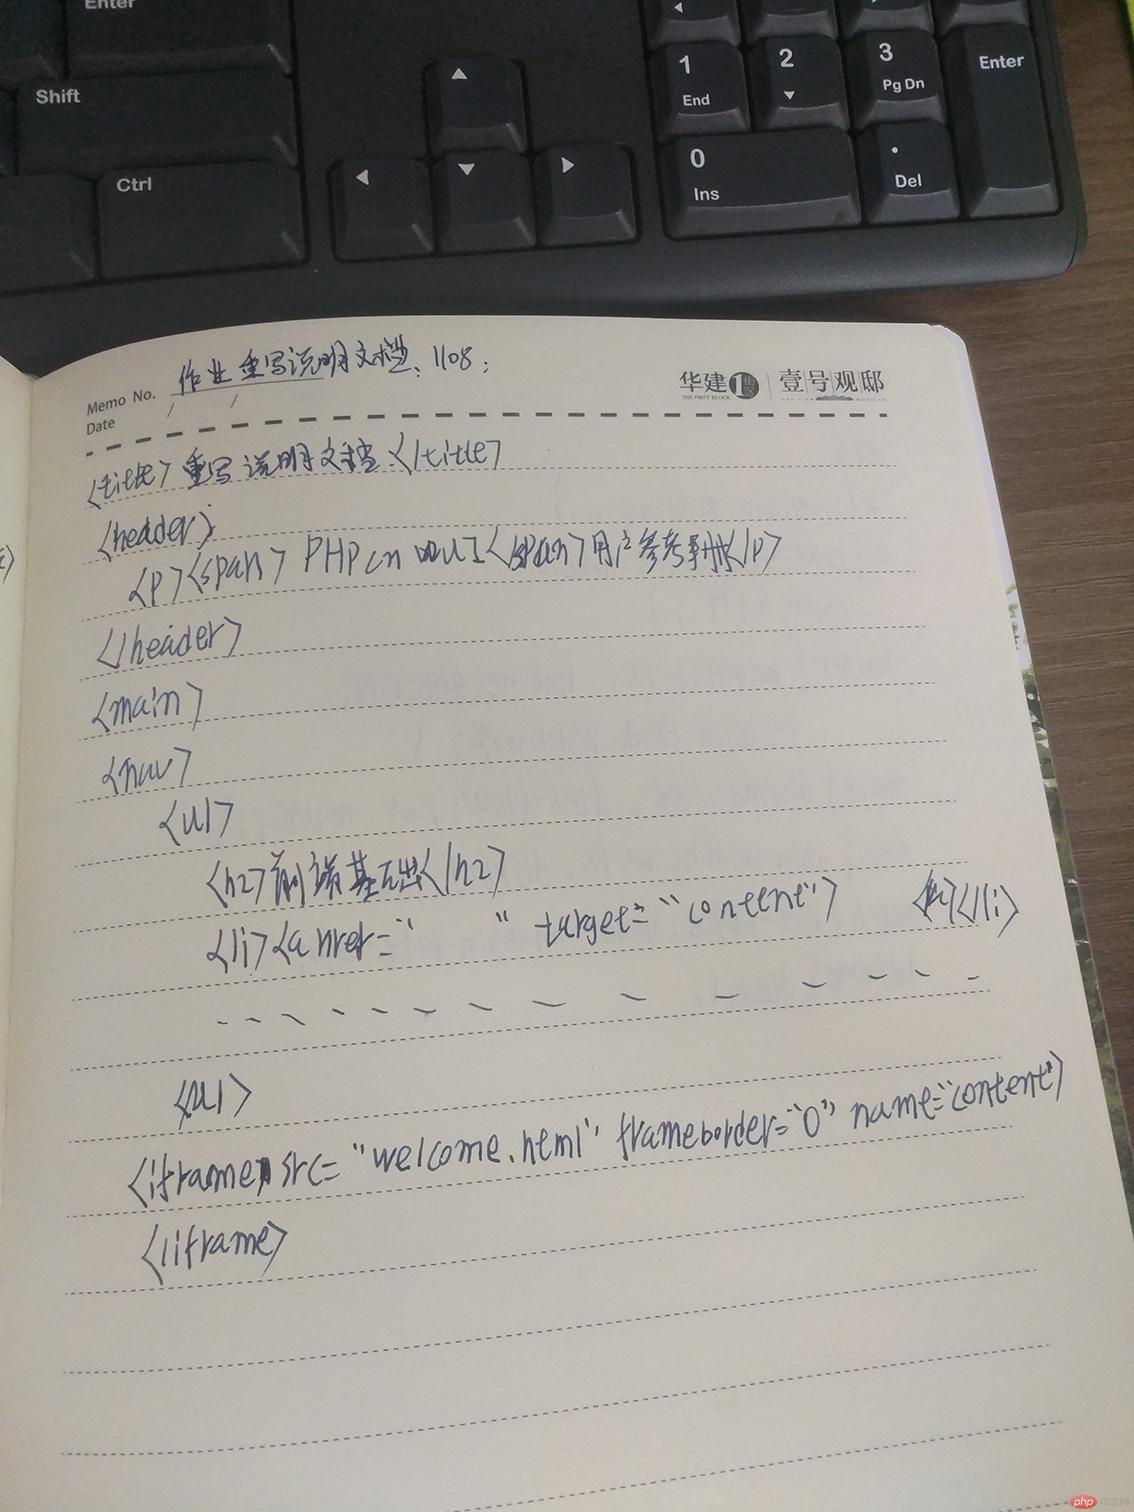 Enter
Shift
Ctrl
1
End
2
3
Pg Dn
Enter
0
Ins
.
Del
作业重写说明文档:1108:
Memo No.
Date
华建1街区
THE FIRST BLOCK
壹号观邸
<title>重写说明文档</title>
<header>
<p><span>PHPcn WUI</span>用户参考手册</p>
</header>
<main>
<nav>
<ul>
<h2>前端基础</h2>
<li><a href=" " target="content"> </a></li>
<ul>
<iframe src="welcome.html" frameborder="0" name="content">
</iframe>
php中文网